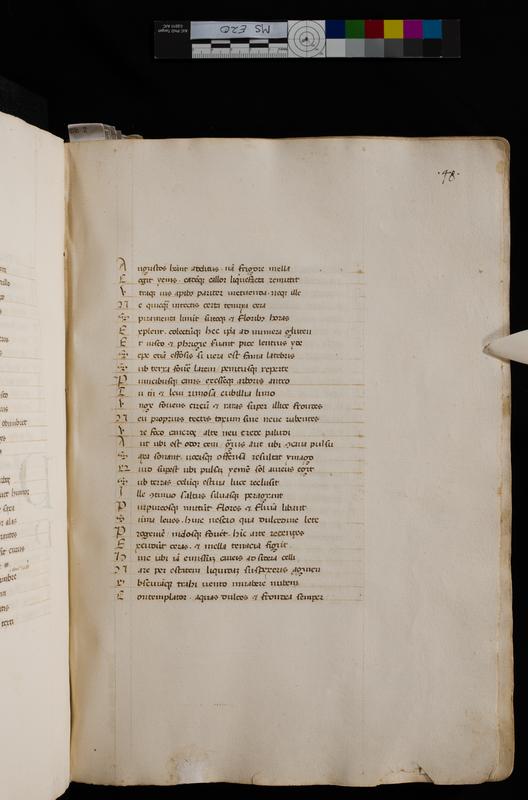 ·48·
A ngustos hñnt additus · nã frigore mella
C ogit yems · eadẽqꝫ callor liquefacta remittit
V traqꝫ uis apibꝫ pariter metuenda · neqꝫ ille
N e quicqꝫ in tectis certa tempia cera
S piramenta linũt fucoqꝫ ⁊ floribꝫ horas
E xplent · colectũqꝫ hec ipsa ad munera gluten
E t uisco ⁊ phrigie seruant pice lentius yde
S epe etiã effosis si uera est fama latebris
S ub terra fouẽ larem · penitusqꝫ reperte
P umicibusqꝫ cauis exesseqꝫ arboris antro
T u tñ ⁊ leui rimosa cubilia limo
V nge fouens circũ ⁊ raras super illice frondes
N eu propius tectis taxum sine neue rubentes
V re foco cancros · alte neu crede paludi
A ut ubi est odor ceni gͣuis aut ubi ꝯcaua pulsu
S axa sonant · uocisqꝫ offensa resultat ymago
Q uod supest ubi pulsã yemẽ sol aureus egit
S ub terras · celũqꝫ estiua luce reclusit
I lle ꝯtinuo saltus siluasqꝫ peragrant
P urpureosqꝫ metũt flores ⁊ flumina libant
S uma leues · hinc nescio qua dulcedine lete
P rogeniẽ nidosqꝫ fouẽt · hic arte recentes
E xcudũt ceras · ⁊ mella tenacia fĩgũt
H inc ubi iã emissũ caueis ad sidera celli
N are per estatem liquidaz suspexeris agmen
O bscurãqꝫ trahi uento mirabere nubem
C ontemplator · aquas dulces ⁊ frondea semper
MS E20